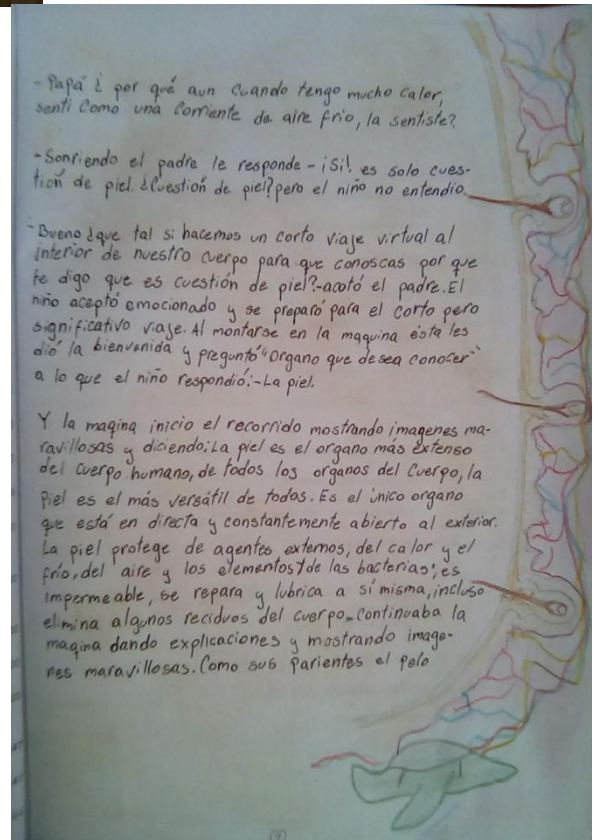 - Papá ¿ por qué aun cuando tengo mucho calor,
senti como una corriente de aire frio, la sentiste?
- Sonriendo el padre le responde - ¡Si! es solo cues-
tión de piel. ¿Cuestión de piel? pero el niño no entendio.
- Bueno ¿que tal si hacemos un corto viaje virtual al
interior de nuestro cuerpo para que conoscas por que
te digo que es cuestión de piel? - acotó el padre. El
niño aceptó emocionado y se preparó para el corto pero
significativo viaje. Al montarse en la maquina ésta les
dió la bienvenida y preguntó "Organo que desea conocer"
a lo que el niño respondió: - La piel.
Y la magina inicio el recorrido mostrando imagenes ma-
ravillosas y diciendo: La piel es el organo más extenso
del cuerpo humano, de todos los organos del cuerpo, la
piel es el más versátil de todos. Es el único organo
que está en directa y constantemente abierto al exterior.
La piel protege de agentes externos, del calor y el
frío, del aire y los elementos y de las bacterias; es
impermeable, se repara y lubrica a sí misma, incluso
elimina algunos reciduos del cuerpo - continuaba la
magina dando explicaciones y mostrando image-
nes maravillosas. Como sus parientes el pelo